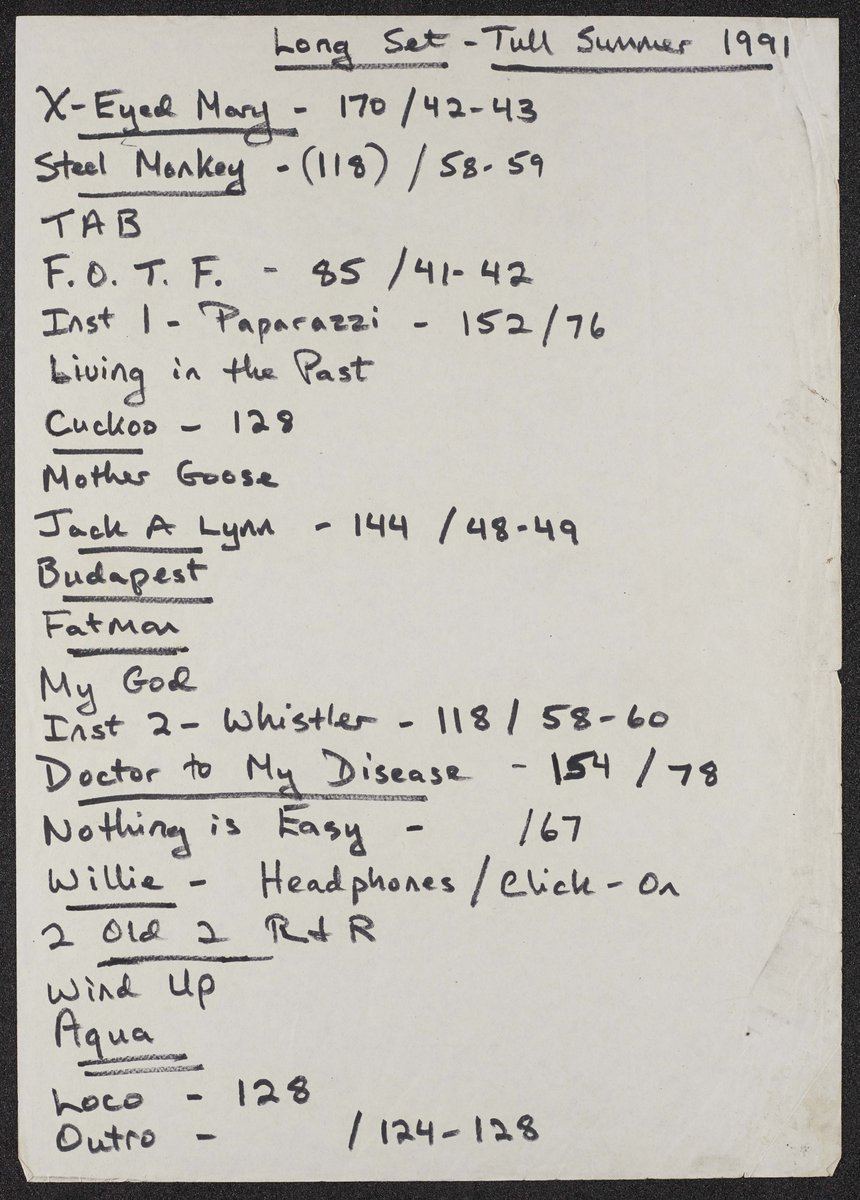 Long Set - Tull Summer 1991
X-Eyed Mary - 170 / 42-43
Steel Monkey - (118) / 58-59
TAB
F.O.T.F. - 85 / 41-42
Inst 1 - Paparazzi - 152/76
Living in the Past
Cuckoo - 128
Mother Goose
Jack A Lynn - 144 / 48-49
Budapest
Fatman
My God
Inst 2 - Whistler - 118 / 58-60
Doctor to My Disease - 154 / 78
Nothing is Easy - /67
Willie - Headphones / Click-On
2 Old 2 R+R
Wind Up
Aqua
Loco - 128
Outro - / 124-128